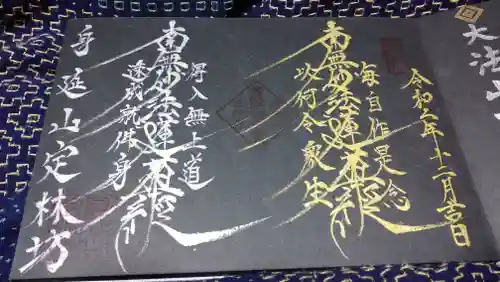 大法
令和二年十二月吉日
毎自作是念
南無妙法蓮華経
以何令衆生
得入無上道
南無妙法蓮華経
速成就仏身
身延山定林坊